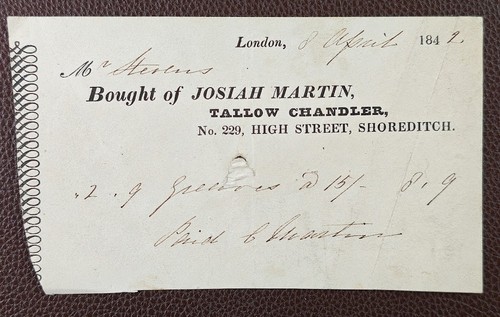 London, 8 April 1842.
Mr Stevens
Bought of JOSIAH MARTIN,
TALLOW CHANDLER,
No. 229, HIGH STREET, SHOREDITCH.
. 2 . 9 Greaves @ 15/- 8 . 9
Paid C Martin